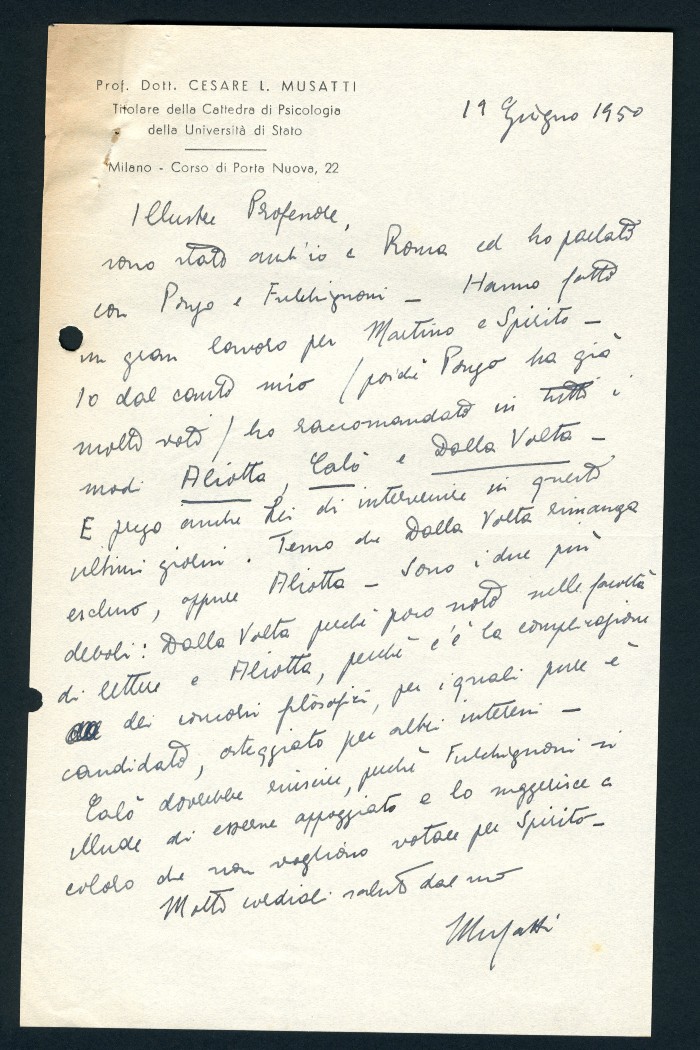 Prof. Dott. CESARE L. MUSATTI
Titolare della Cattedra di Psicologia
della Università di Stato
Milano - Corso di Porta Nuova, 22
19 Giugno 1950
Illustre Professore,
sono stato anch'io a Roma ed ho parlato
con Ponzo e Fulchignoni – Hanno fatto
un gran lavoro per Martino e Spirito –
Io dal canto mio (poiché Ponzo ha già
molti voti) ho raccomandato in tutti i
modi Aliotta, Calò e Dalla Volta –
E prego anche Lei di intervenire in questi
ultimi giorni. Temo che Dalla Volta rimanga
escluso, oppure Aliotta – Sono i due più
deboli: Dalla Volta perché poco noto nelle facoltà
di lettere e Aliotta, perché c'è la complicazione
dei concorsi filosofici, per i quali pure è
candidato, osteggiato per altri interessi –
Calò dovrebbe riuscire, perché Fulchignoni si
illude di esserne appoggiato e lo suggerisce a
coloro che non vogliono votare per Spirito –
Molti cordiali saluti dal suo
Musatti